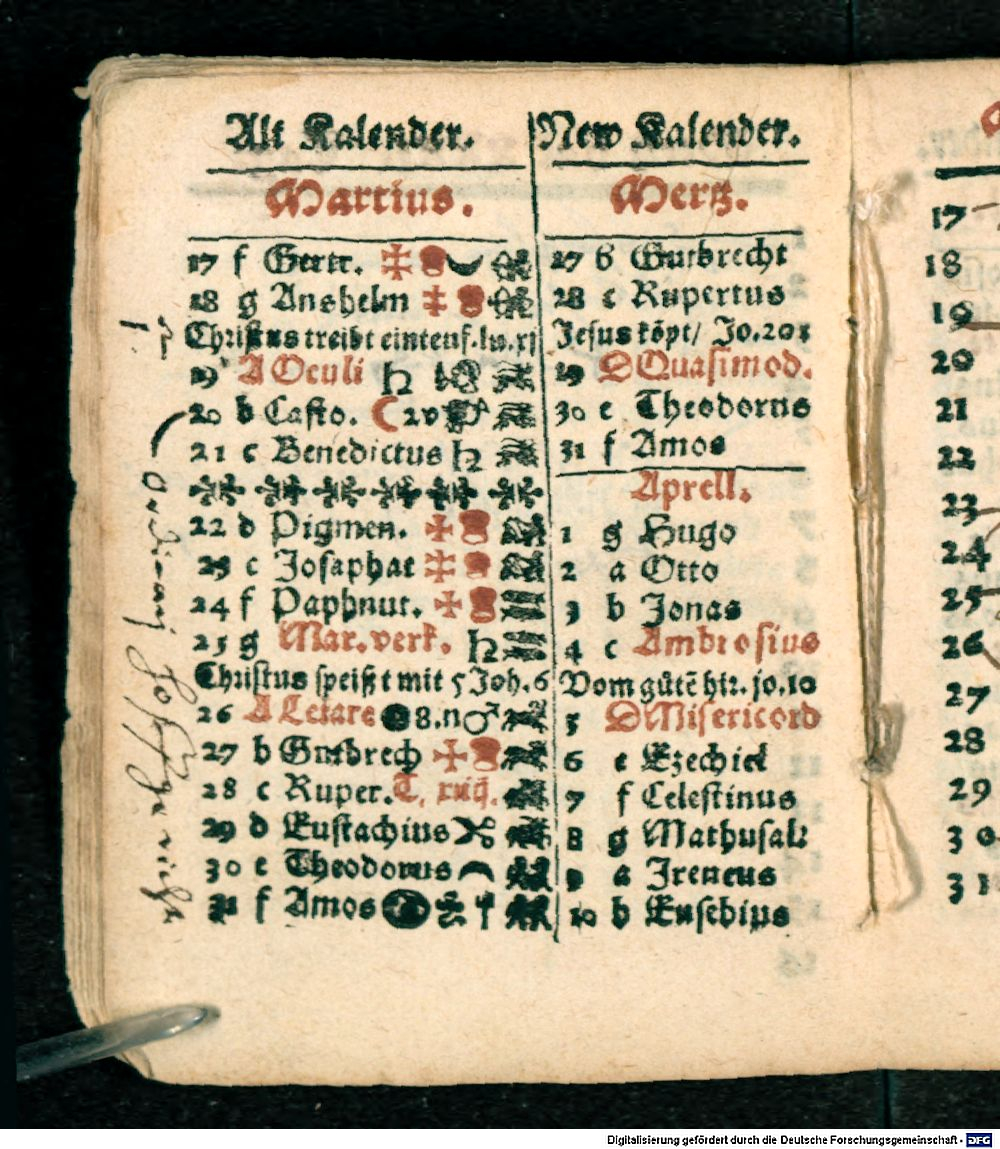 Alt Kalender.
Martius.
17 f Gertr.
18 g Anshelm
Christus treibt ein teuf. lu. xj
19 A Oculi
20 b Casto.
21 c Benedictus
22 d Pigmen.
23 e Josaphat
24 f Paphnut.
25 g Mar. verk.
Christus speißt mit 5 Joh. 6
26 A Letare 8. n
27 b Gutbrech
28 c Ruper.
29 d Eustachius
30 e Theodorus
31 f Amos
New Kalender.
Mertz.
27 b Gutbrecht
28 c Rupertus
Jesus kõpt/ Jo. 20
29 D Quasimod.
30 e Theodorus
31 f Amos
Aprell.
1 g Hugo
2 a Otto
3 b Jonas
4 c Ambrosius
Vom gütẽ hir. jo. 10
5 D Misericord
6 e Ezechiel
7 f Celestinus
8 g Mathusal
9 a Ireneus
10 b Eusebius
17
18
19
20
21
22
23
24
25
26
27
28
29
30
31
Digitalisierung gefördert durch die Deutsche Forschungsgemeinschaft - DFG